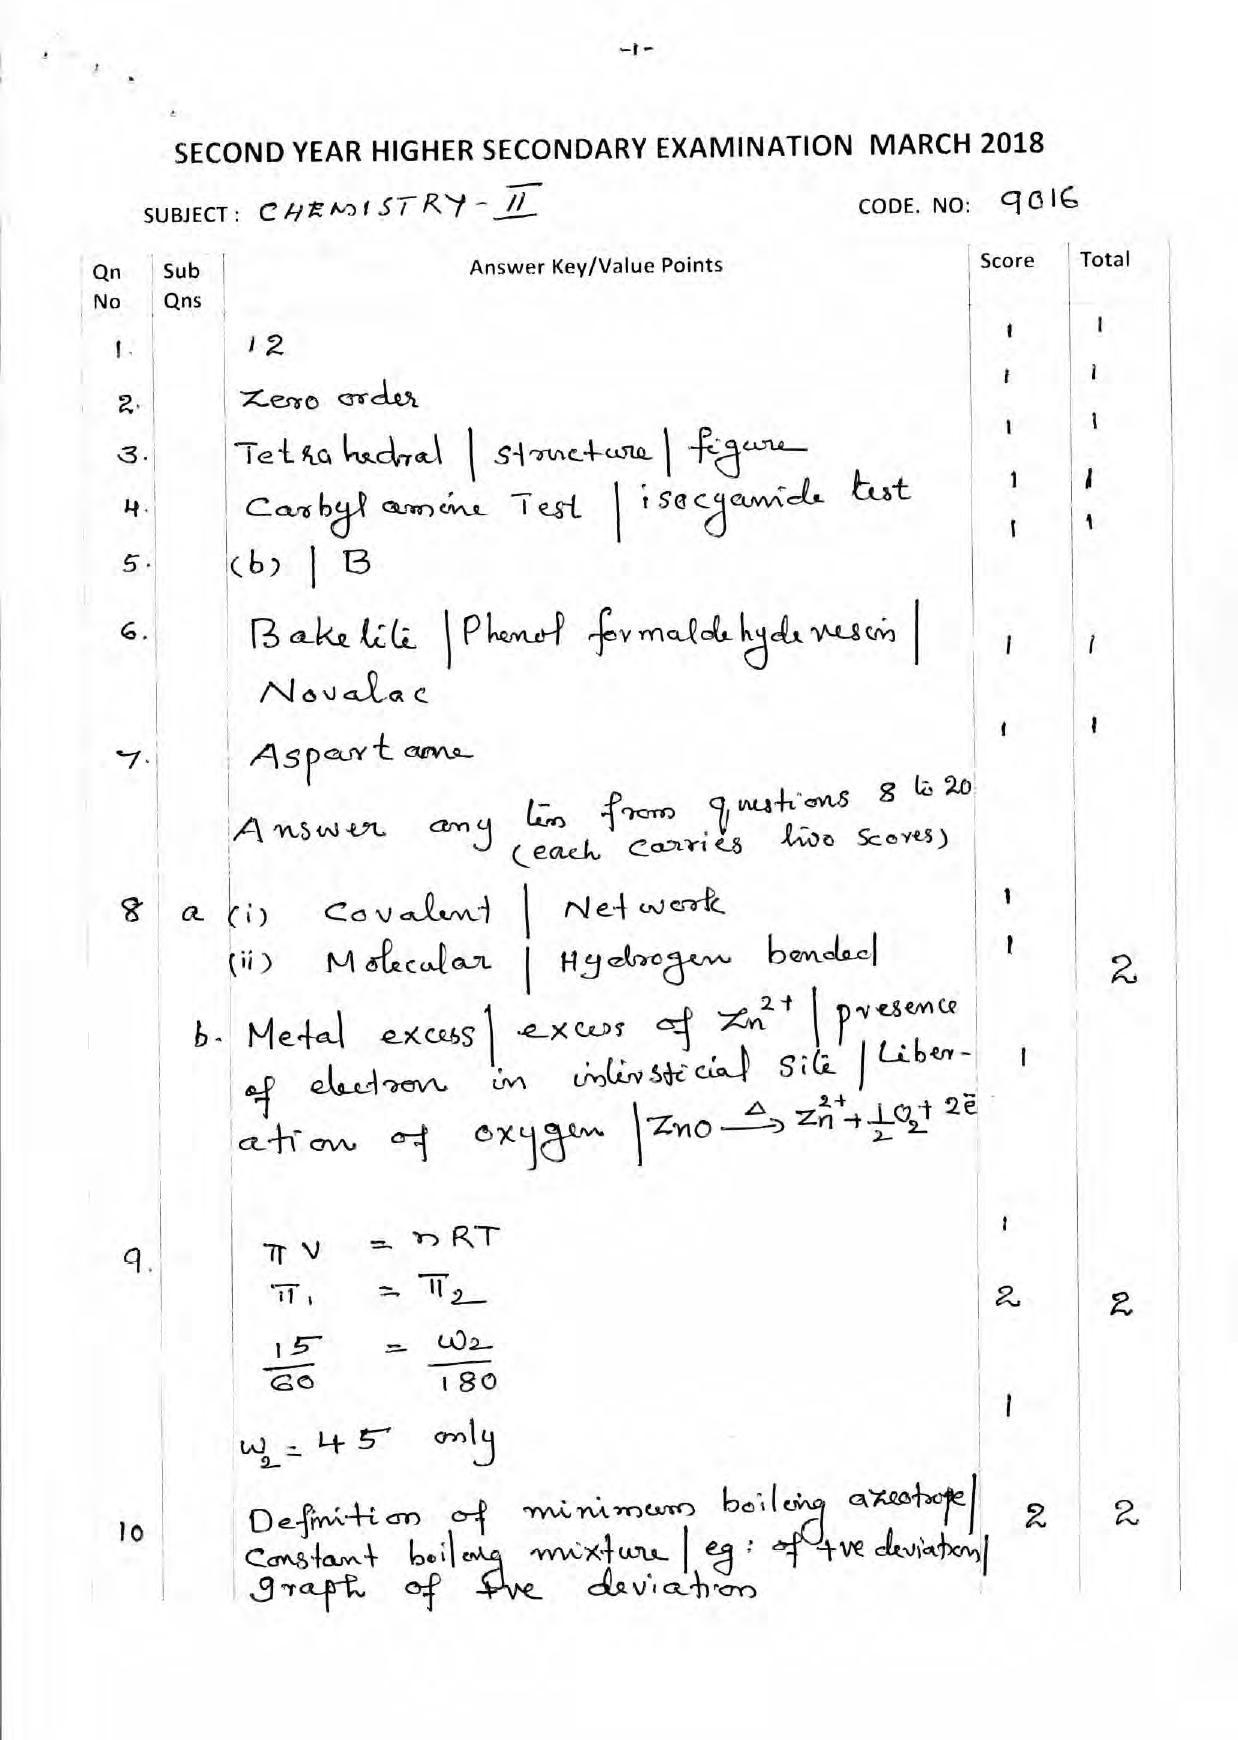 -1-
SECOND YEAR HIGHER SECONDARY EXAMINATION MARCH 2018
SUBJECT: CHEMISTRY-II CODE. NO: 9016
Qn No Sub Qns Answer Key/Value Points Score Total
1. 12 1 1
2. Zero order 1 1
3. Tetrahedral | structure | figure 1 1
4. Carbylamine Test | isocyanide test 1 1
5. (b) | B 1 1
6. Bakelite | Phenol formaldehyde resin | 1 1
Novalac
7. Aspartame 1 1
Answer any ten from questions 8 to 20
(each carries two scores)
8 a (i) Covalent | Network 1
(ii) Molecular | Hydrogen bonded 1 2
b. Metal excess | excess of Zn²⁺ | presence
of electron in intersticial site | Liber- 1
ation of oxygen | ZnO —Δ→ Zn²⁺ + 1/2 O₂ + 2e̅
9. π V = nRT 1
π₁ = π₂ 2 2
15/60 = W₂/180
W₂ = 45 only 1
10 Definition of minimum boiling azeotrope | 2 2
Constant boiling mixture | eg: of +ve deviation |
graph of +ve deviation